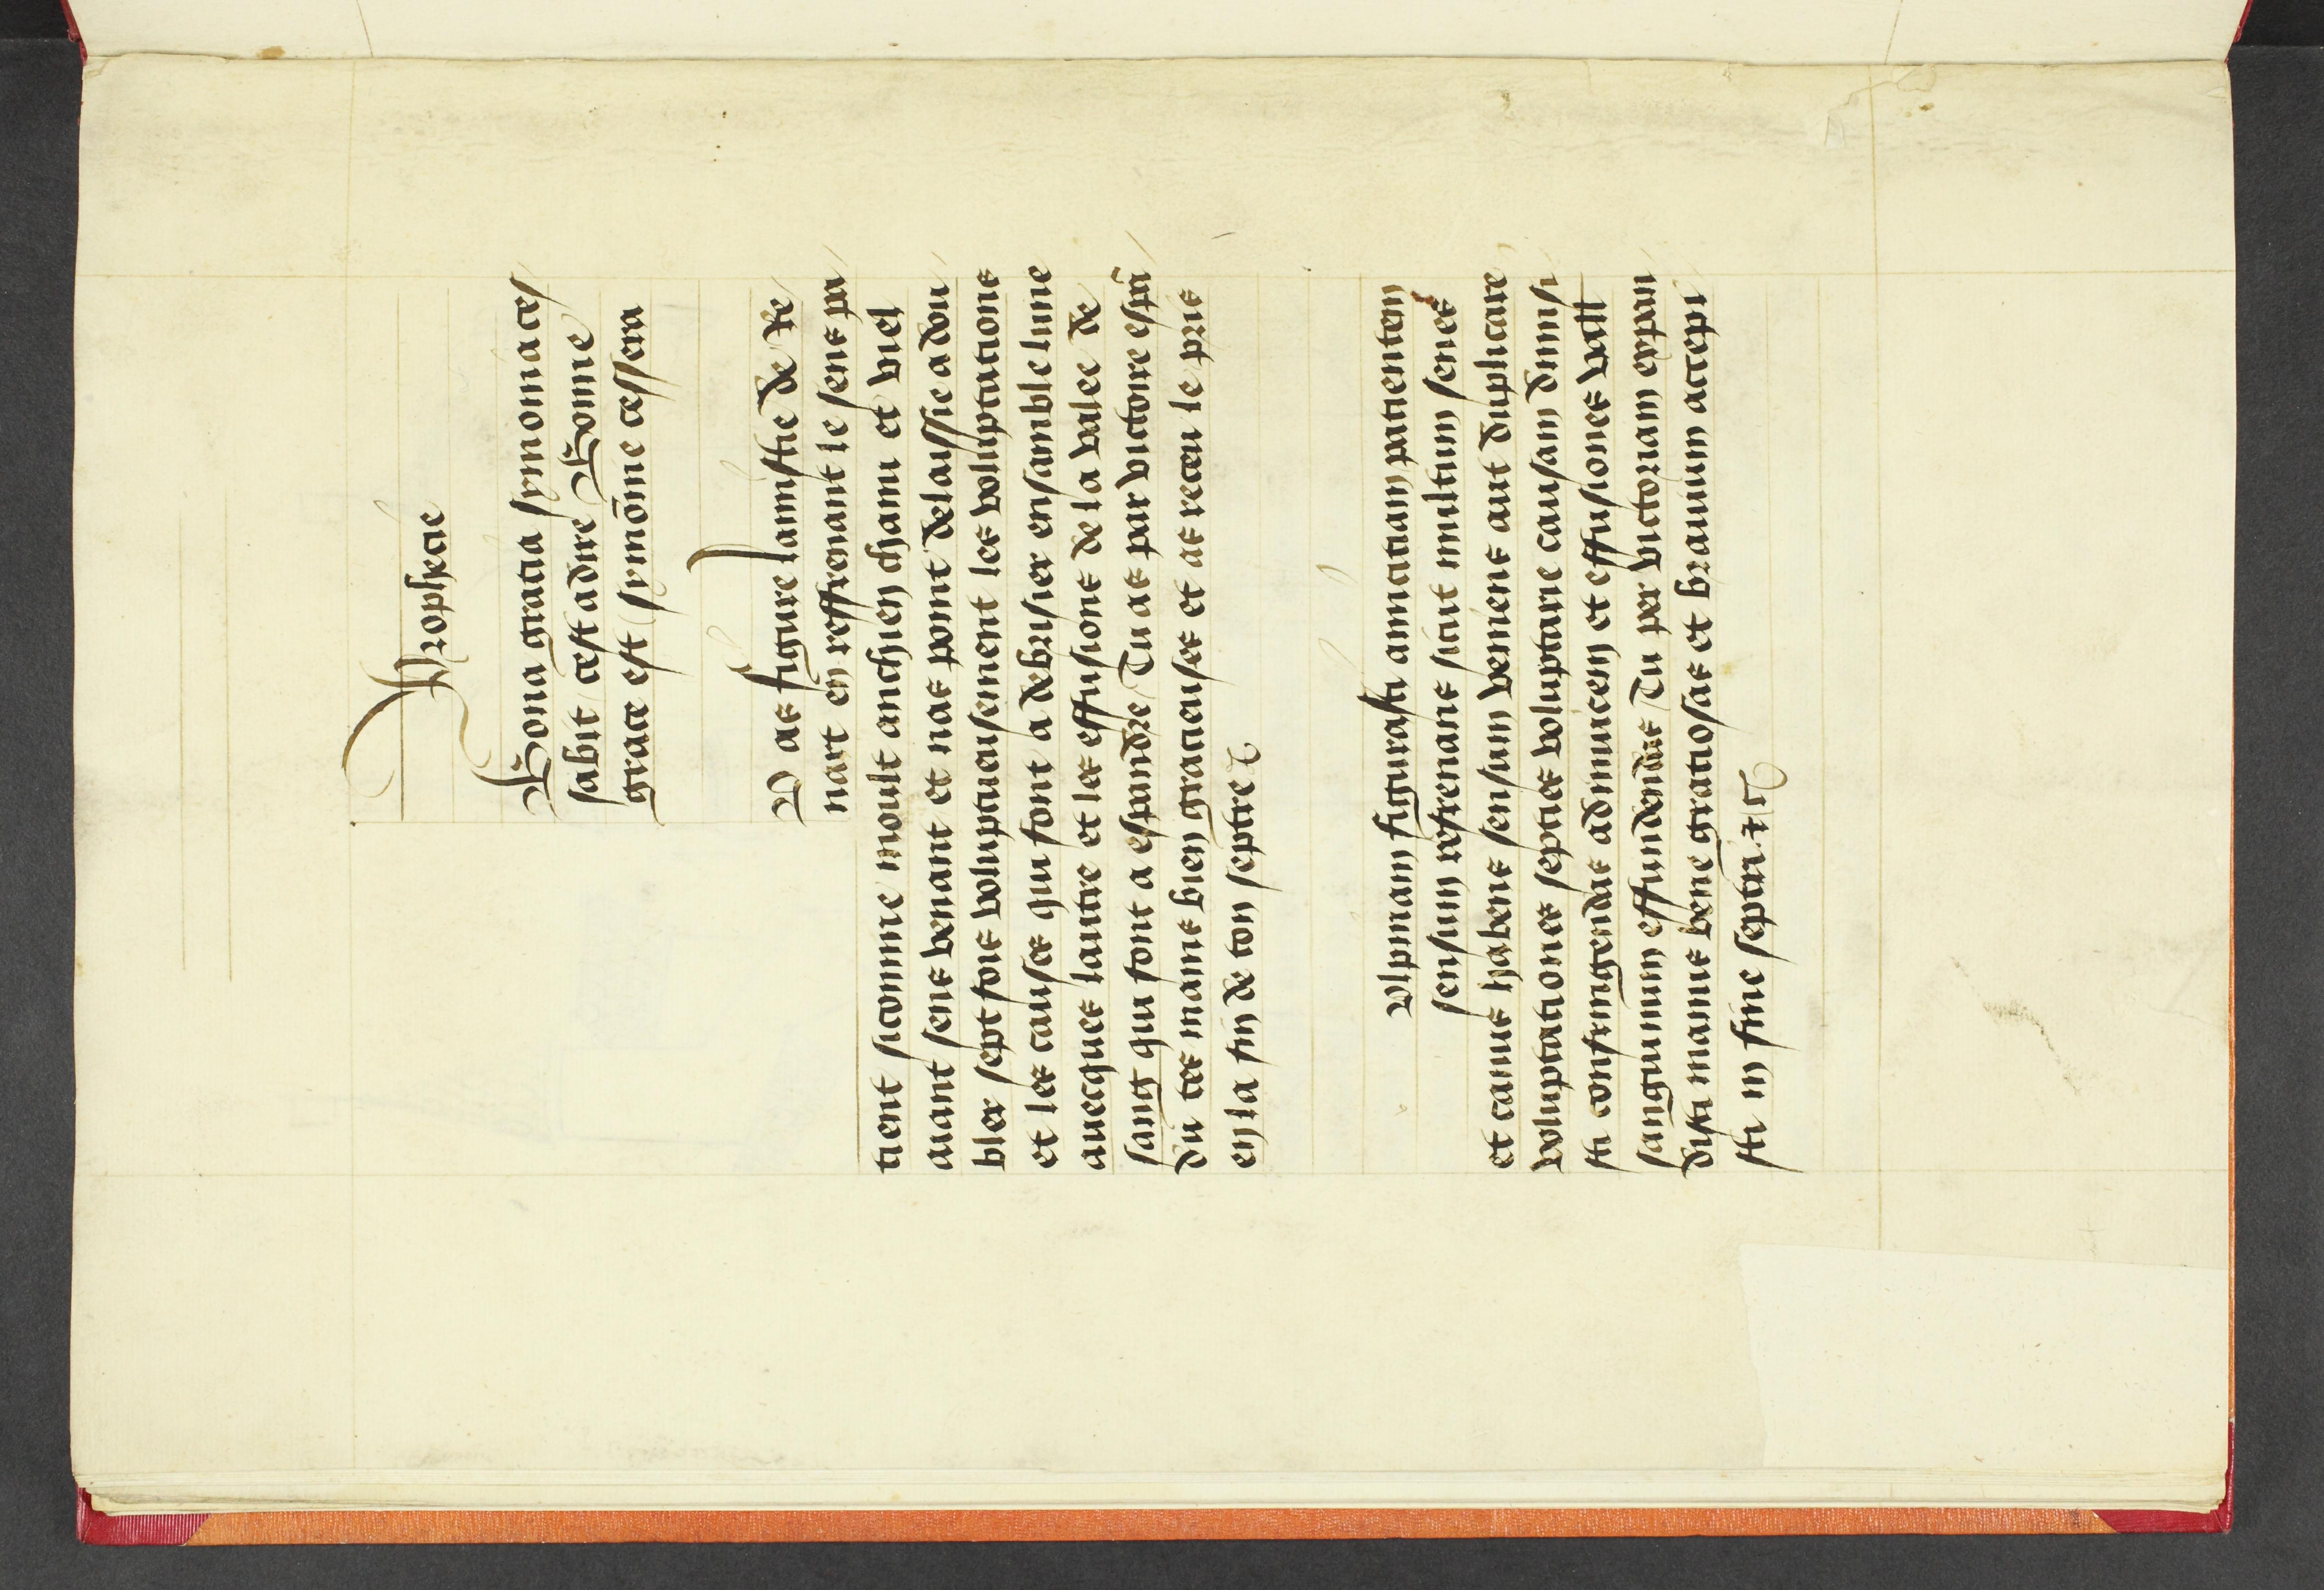 Prophecie
Bona gratia symonia ces
sabit cest adire Bonne
grace est symōnie cessera
U as figure lamistie de Re
nart en reffrenant le sens pa
tient sicomme moult anchien chanu et viel
aiant sens venant et nas point delaissie a dou
bler sept fois voluptueusement les voluptations
et les causes qui font a debrisier ensamble lune
auecques lautre et les effusions de la valee de
sang qui font a espandre Tu as par victoire espā
du tes mains bien gracieuses et as receu le pris
en la fin de ton septre
vlpinam figurasti amicitiam patientem
sensum refrenans sicut multum senes
et canus habens sensum veniens aut duplicare
voluptationes septies voluptarie causam dimisi
sti confringendas adinuicem et effusiones vall
sanguinum effundendas Tu per victoriam expan
disti manus bene gratiosas et brauium accepi
sti in fine septri